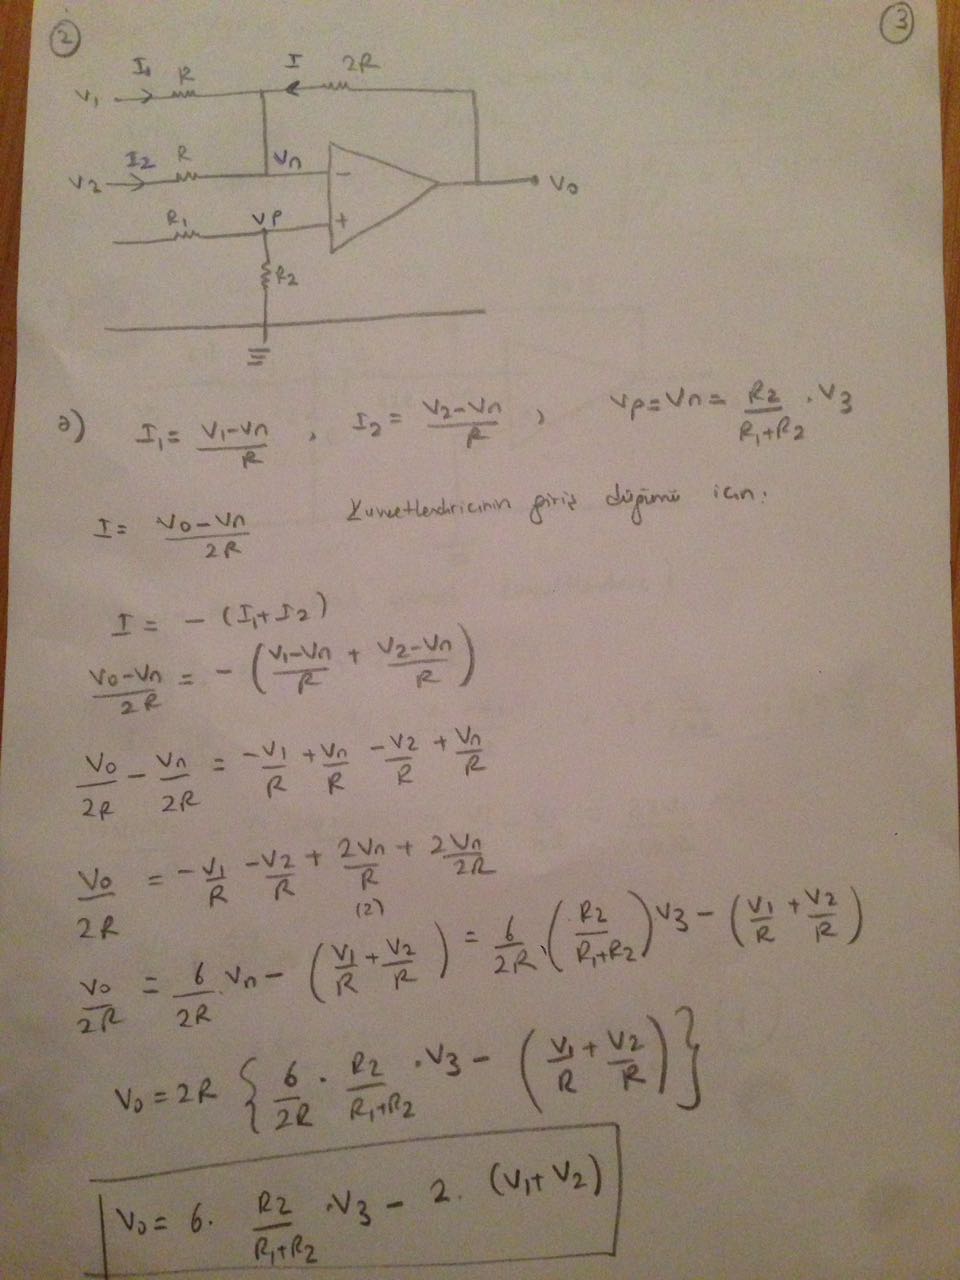 2
3
I₁ R I 2R
V₁
I2 R Vn
V2
− V₀
R₁ VP
+
R2
a) I₁ = (V₁-Vn)/R , I2 = (V2-Vn)/R , Vp = Vn = R2/(R₁+R2) . V3
I = (V₀-Vn)/2R Kuvvetlendiricinin giriş düğümü icin:
I = - (I₁+I2)
(V₀-Vn)/2R = - ((V₁-Vn)/R + (V2-Vn)/R)
V₀/2R - Vn/2R = -V₁/R + Vn/R -V2/R + Vn/R
V₀/2R = -V₁/R -V2/R + 2Vn/R + 2Vn/2R
(2)
V₀/2R = 6/2R . Vn - (V₁/R + V2/R) = 6/2R . (R2/(R₁+R2)) V3 - (V₁/R + V2/R)
V₀ = 2R { 6/2R . R2/(R₁+R2) . V3 - (V₁/R + V2/R) }
V₀ = 6. R2/(R₁+R2) .V3 - 2. (V₁+V2)